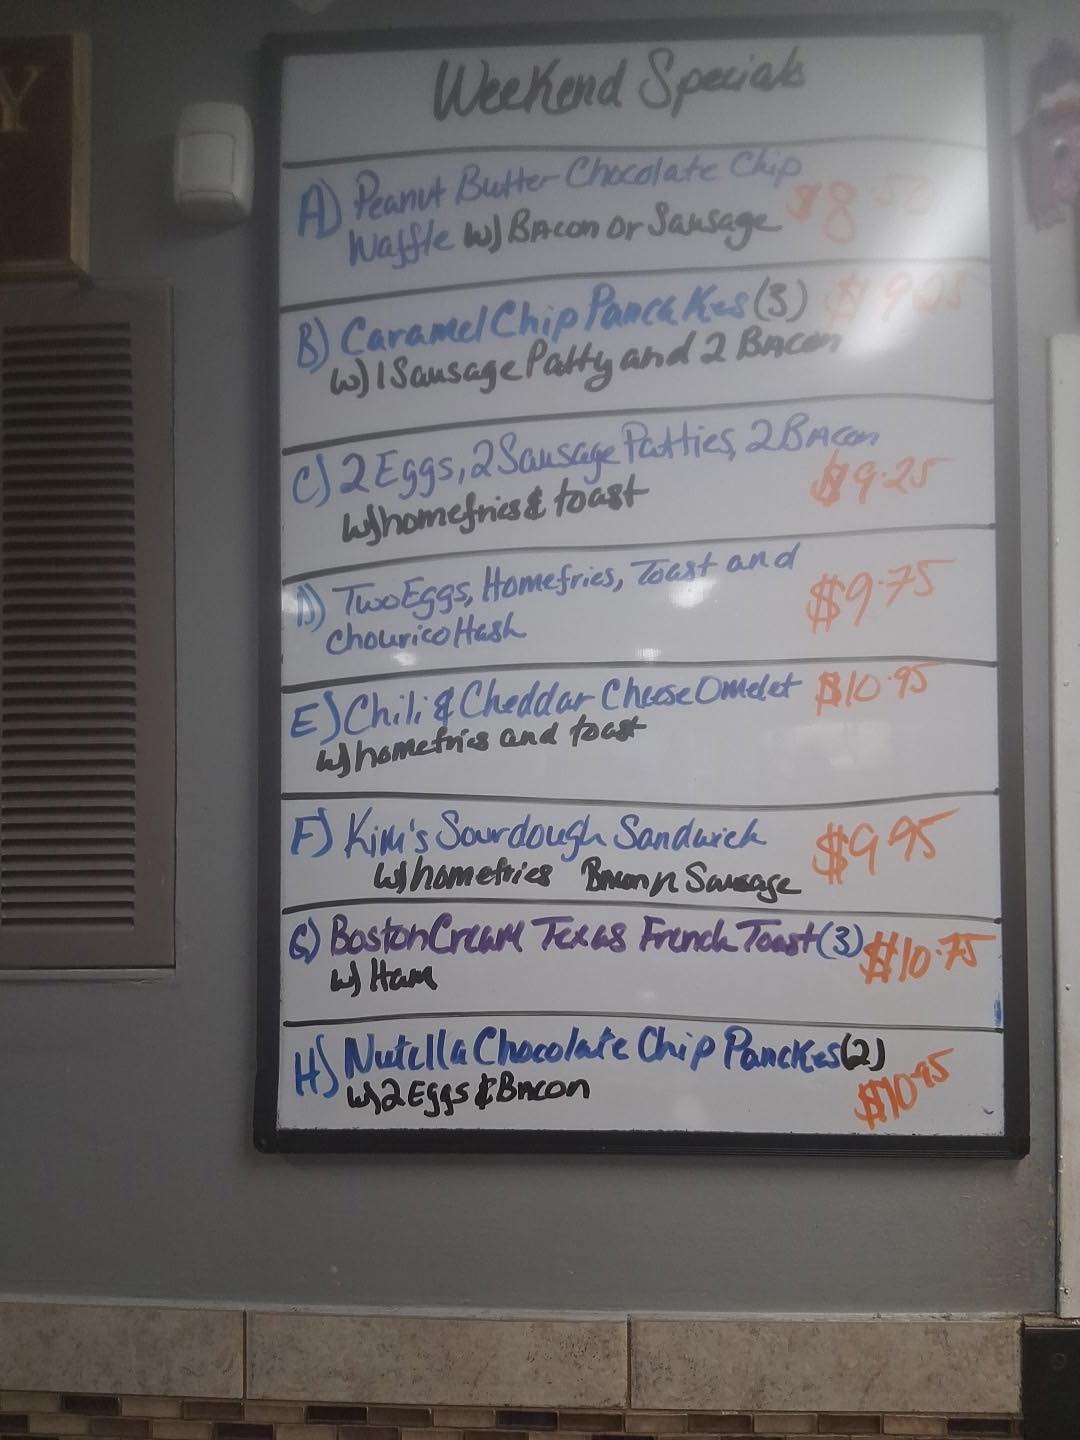 Y
Weekend Specials
A) Peanut Butter Chocolate Chip
Waffle w/ Bacon or Sausage $8.50
B) Caramel Chip Pancakes (3) $9.25
w/ 1 Sausage Patty and 2 Bacon
C) 2 Eggs, 2 Sausage Patties, 2 Bacon
w/ homefries & toast $9.25
D) Two Eggs, Homefries, Toast and
Chourico Hash $9.75
E) Chili & Cheddar Cheese Omelet $10.95
w/ homefries and toast
F) Kim's Sourdough Sandwich $9.95
w/ homefries Bacon n Sausage
G) Boston Cream Texas French Toast (3) $10.75
w/ Ham
H) Nutella Chocolate Chip Panckes (2)
w/ 2 Eggs & Bacon $10.95